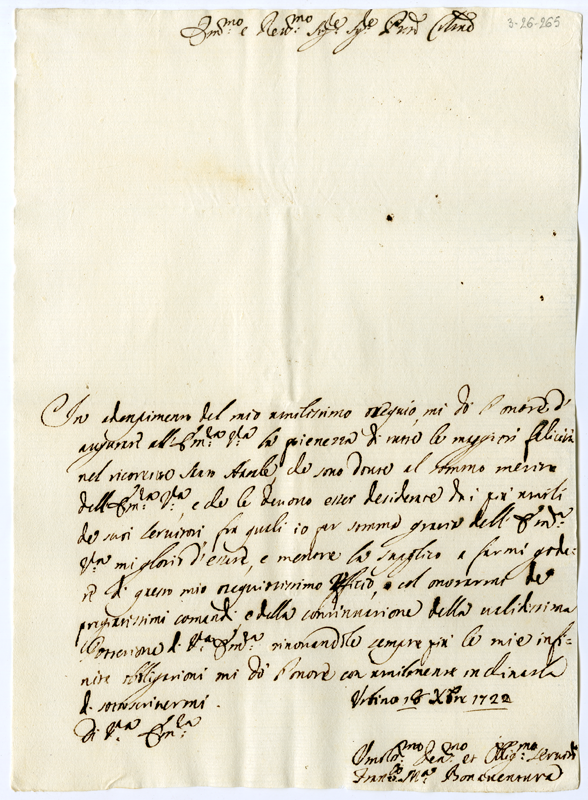 Em.mo e Rev.mo Sig.re Sig.re Prõn Col.mo
3-26-265
In adempimento del mio umilissimo ossequio, mi dò l'onore d'
augurare all'Em.za V.ra la pienezza di tutte le maggiori felicità
nel ricorrente Santo Natale, che sono dovute al sommo merito
dell'Em.za V.ra, e che le devono esser desiderate da i più umili
de suoi servitori, fra quali io per somma grazia dell'Em.za
V.ra mi glorio d'essere, e mentre la supplico a farmi gode-
re di questo mio ossequiosissimo Uffizio, col onorarmi de
pregiatissimi comandi, e della continuazione della validissima
Protezione di V.ra Em.za rinovandole sempre più le mie infi-
nite obbligazioni mi dò l'onore con umilmente inchinarla
di sottoscrivermi.
Urbino 18 Xbre 1722
Di V.ra Em.za
Umiliss.mo Dev.mo et Oblig.mo Servit.e
Franc.o M.a Bonaventura